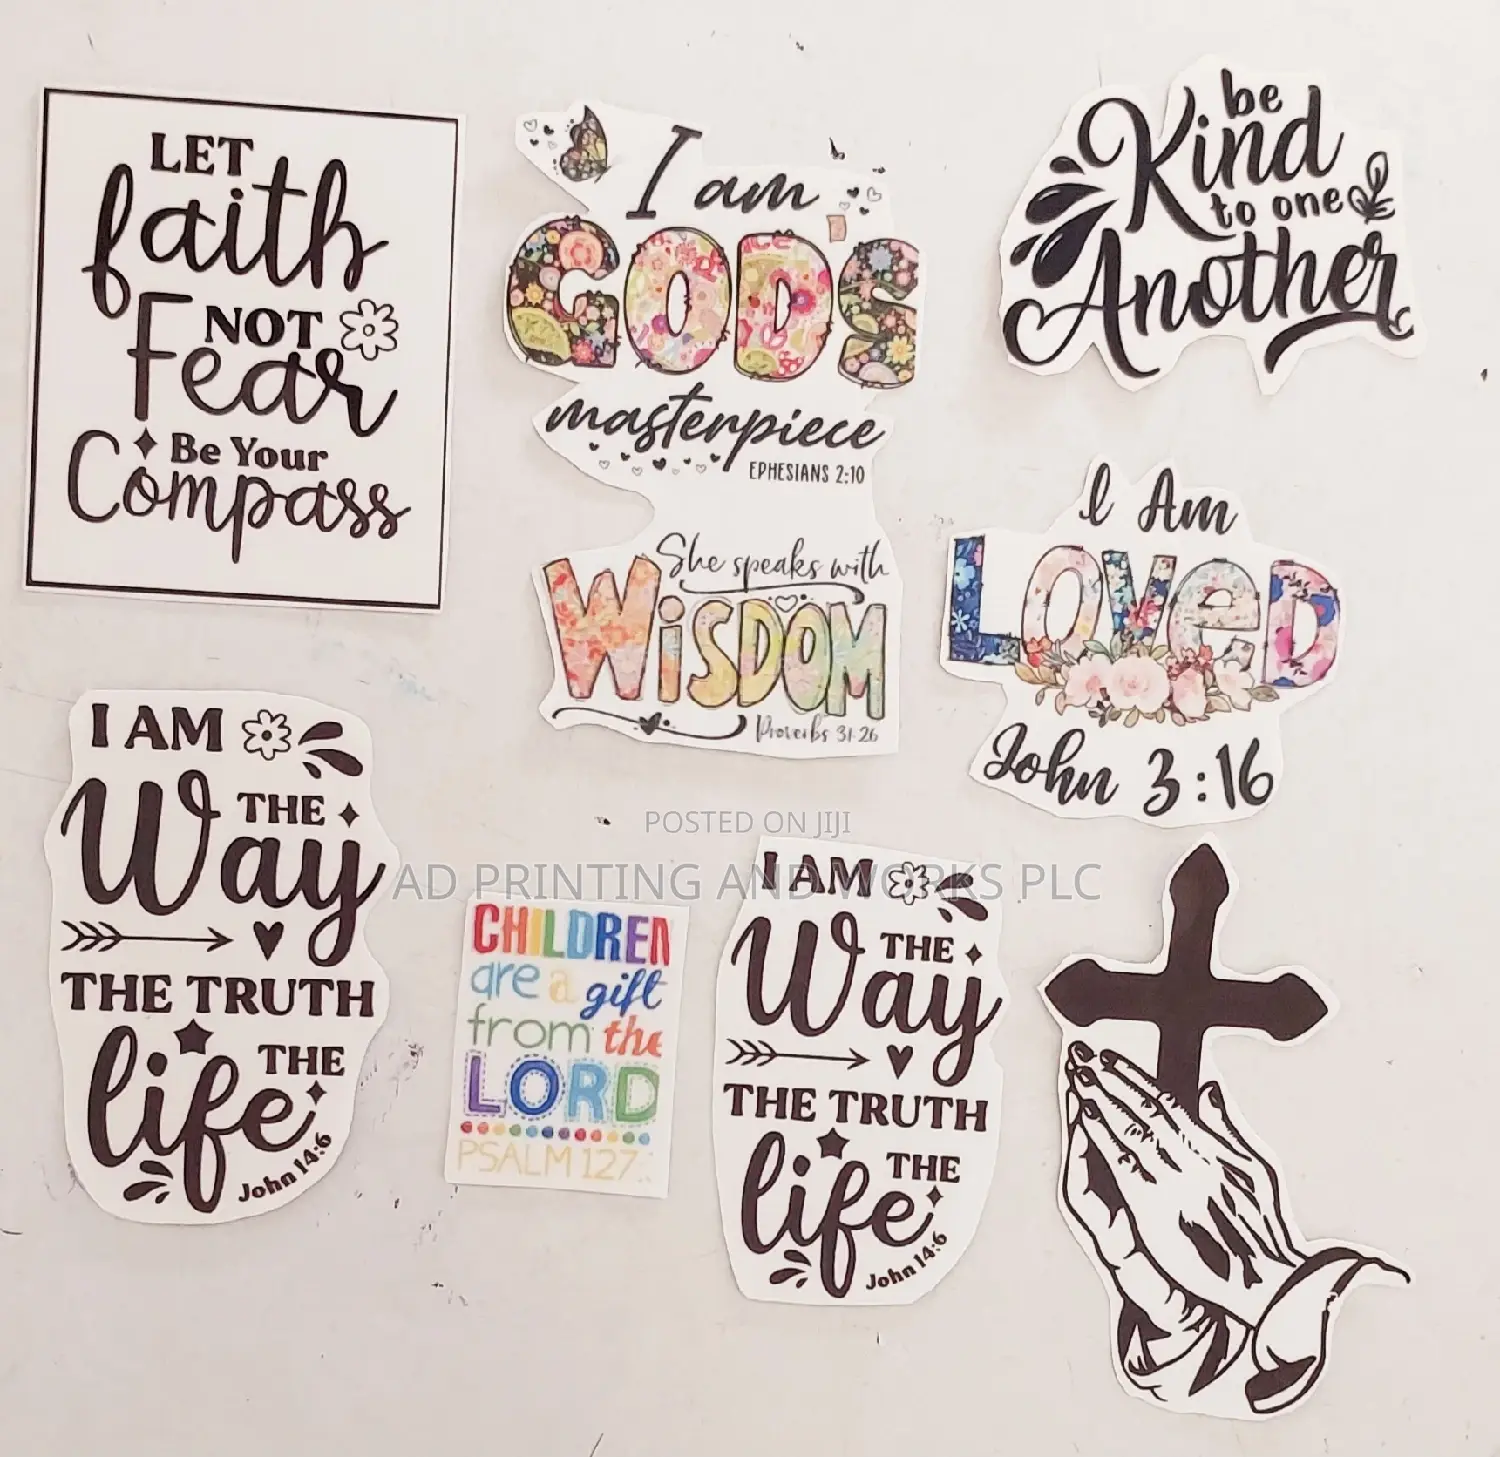 LET
faith
NOT
Fear
Be Your
Compass
I am
GOD'S
masterpiece
EPHESIANS 2:10
She speaks with
WiSDOM
Proverbs 31:26
be
Kind
to one
Another
I Am
LOVeD
John 3:16
I AM
THE
Way
THE TRUTH
THE
life
John 14:6
CHILDREN
are a gift
from the
LORD
PSALM 127:
I AM
THE
Way
THE TRUTH
THE
life
John 14:6
POSTED ON JIJI
AD PRINTING AND WORKS PLC